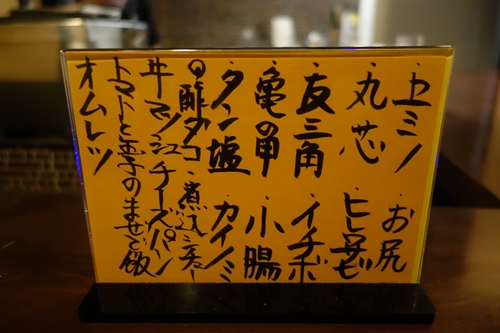 ・上ミノ ・お尻
・丸芯 ・ヒレ
・友三角 ・イチボ
・亀の甲 ・小腸
・タン塩 カイノミ
の酢ダコ・煮込シチュー
牛マッシュチーズパン
トマトと玉子のまぜご飯
オムレツ